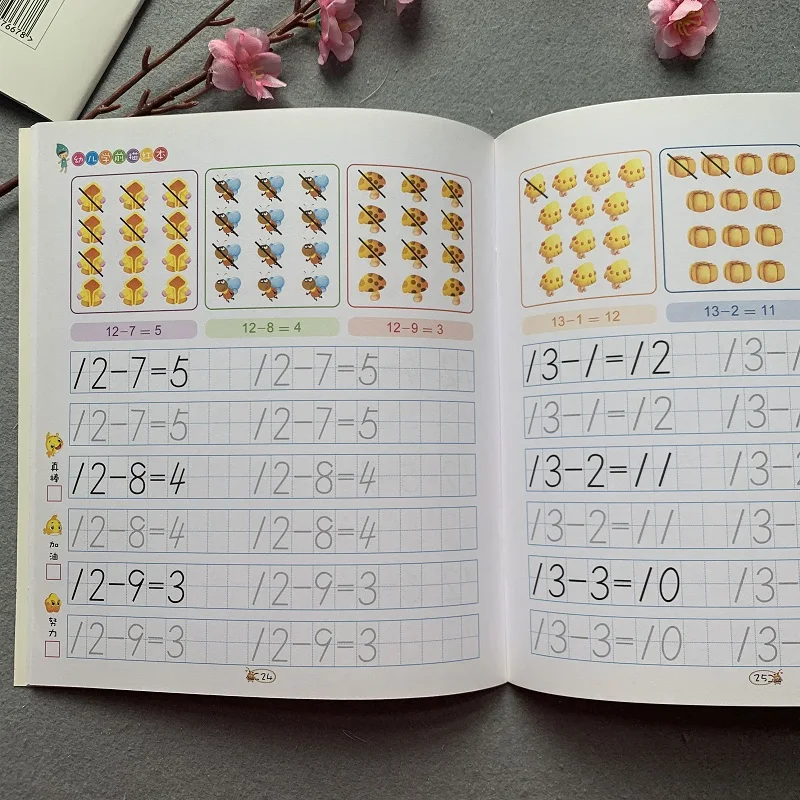 76678>
幼儿学前描红本
12-7=5
12-8=4
12-9=3
12-7=5 12-7=5
12-7=5 12-7=5
12-8=4 12-8=4
12-8=4 12-8=4
12-9=3 12-9=3
12-9=3 12-9=3
真棒
加油
努力
24
13-1=12
13-2=11
13-1=12 13-1
13-1=12 13-
13-2=11 13-2
13-2=11 13-
13-3=10 13-
13-3=10 13-
25